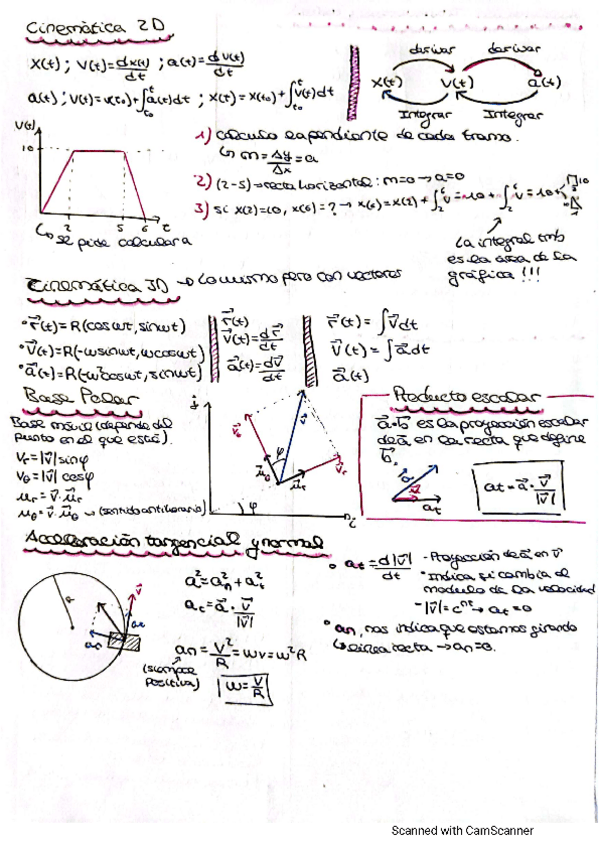 Cinemàtica 2D
x(t) ; v(t) = dx(t)/dt ; a(t) = dv(t)/dt
a(t) ; v(t) = v(t₀) + ∫ₜ₀ᵗ a(t)dt ; x(t) = x(t₀) + ∫ₜ₀ᵗ v(t)dt
derivar derivar
x(t) v(t) a(t)
Integrar Integrar
v(t)
10
2 5 6 t
↳ se pide calcular a
1) calculo la pendiente de cada tramo.
↳ m = Δy/Δx = a
2) (2-5) → recta horizontal: m=0 → a=0
3) si x(2)=10, x(6)=? → x(6) = x(2) + ∫₂⁶ v = 10 + ∫₂⁶ v = 10 +
La integral tmb
es la área de la
gráfica !!!
Cinemática 3D → Lo mismo pero con vectores
• r⃗(t) = R(cosωt, sinωt)
• v⃗(t) = R(-ωsinωt, ωcosωt)
• a⃗(t) = R(-ω²cosωt, sinωt)
r⃗(t)
v⃗(t) = dr⃗/dt
a⃗(t) = dv⃗/dt
r⃗(t) = ∫v⃗dt
v⃗(t) = ∫a⃗dt
a⃗(t)
Base Polar
Base móvil (depende del
punto en el que estás).
Vr = |v⃗| sinφ
Vθ = |v⃗| cosφ
μr = v⃗ · μ⃗r
μθ = v⃗ · μ⃗θ → (sentido antihorario)
v⃗θ v⃗ φ v⃗r
μ⃗θ μ⃗r
φ
Producto escalar
a⃗·b⃗ es la proyección escalar
de a⃗ en la recta que define
b⃗.
a⃗ at
at = a⃗ · v⃗/|v⃗|
Acceleración tangencial y normal
R v⃗ at an
a² = an² + at²
at = a⃗ · v⃗/|v⃗|
an = v²/R = ωv = ω²R
(siempre
positiva)
ω = v/R
• at = d|v⃗|/dt - Proyección de a⃗ en v⃗
• Indica si cambia el
modulo de la velocidad
- |v⃗| = cⁿᵗ → at = 0
• an, nos indica que estamos girando
↳ línea recta → an = 0.
Scanned with CamScanner